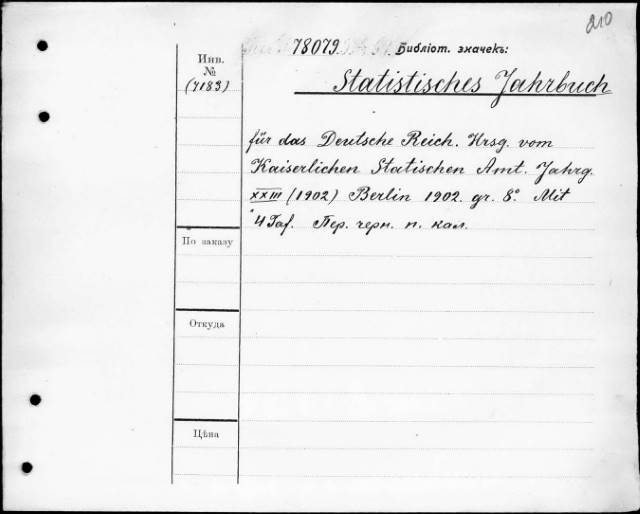 210
78079 Библіот. значекъ:
Инв.
№
(7183)
Statistisches Jahrbuch
für das Deutsche Reich. Hrsg. vom
Kaiserlichen Statischen Amt. Jahrg.
XXIII (1902) Berlin 1902. gr. 8° Mit
4 Taf. Пер. черн. п. кал.
По заказу
Откуда
Цѣна